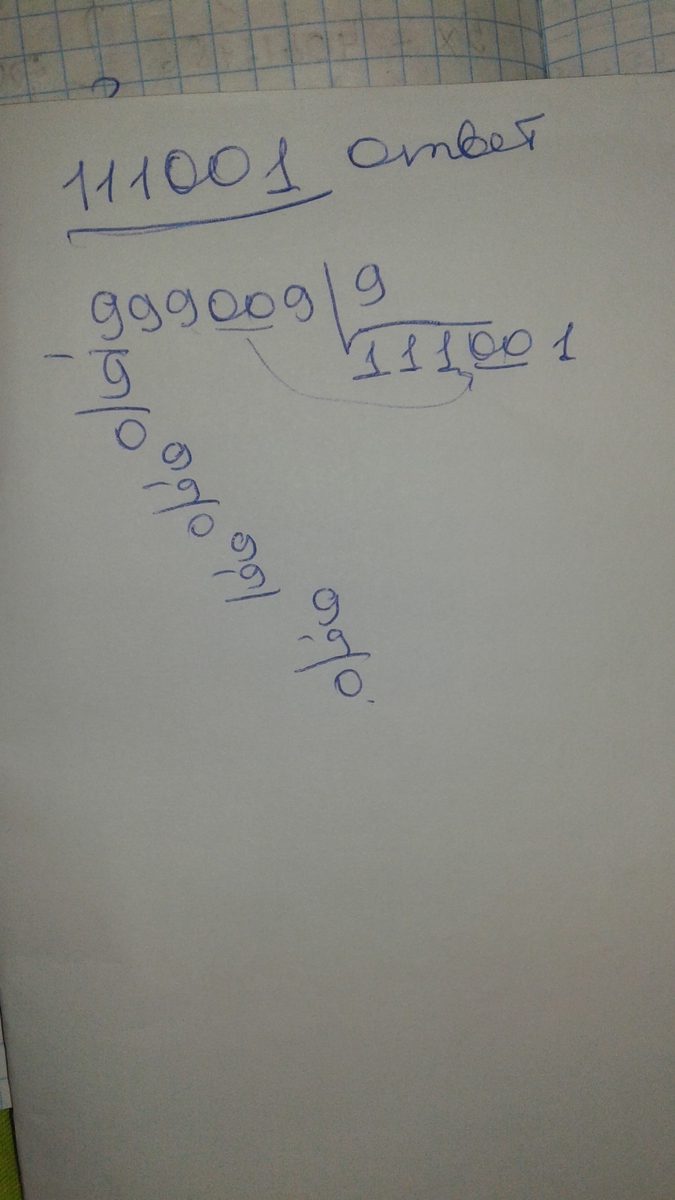 111001 ответ
999009 | 9
111001
- 9
0 9
- 9
0 9
- 9
9
- 9
0.